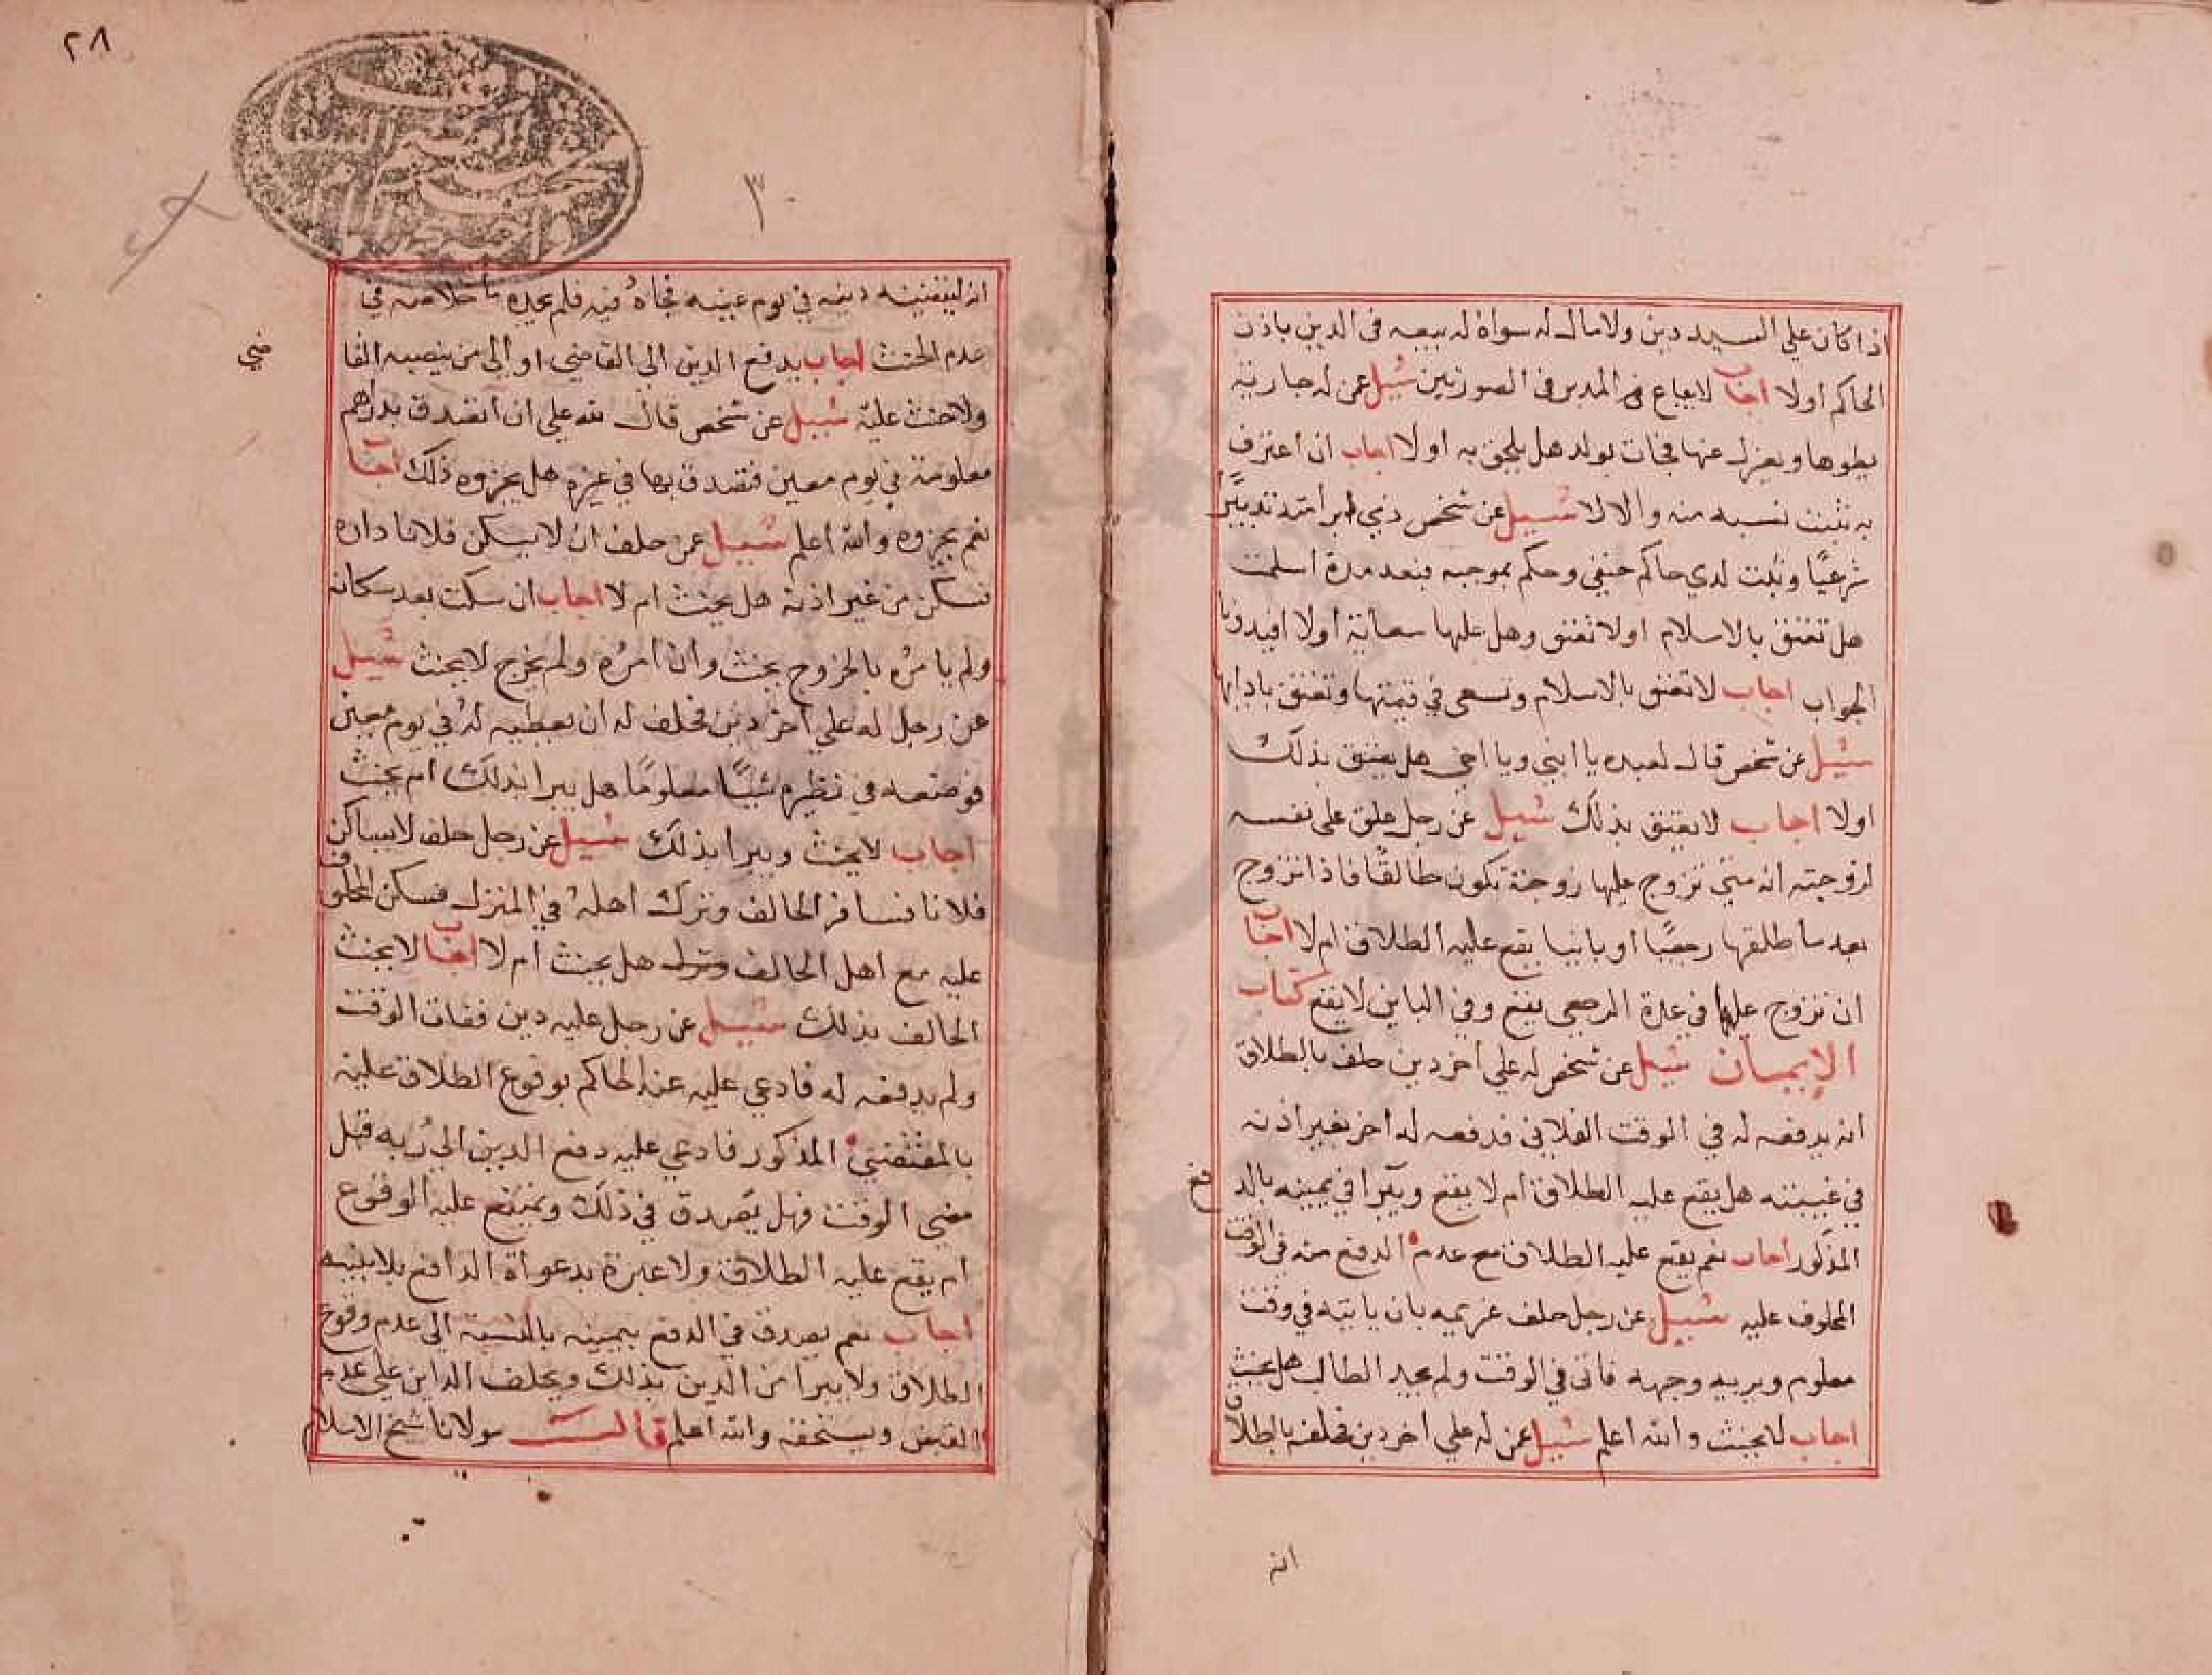 اذا كان علي السيد دين ولا مال له سواه له بيعه في الدين باذن
الحاكم اولا اجاب لا يباع المدبر في الصورتين سُيل عمن له جارية
يطوها ويعزل عنها فجات بولد هل يلحق به اولا اجاب ان اعترف
به ثبت نسبه منه والا لا سُيل عن شخص ذمي دبر امته تدبيرًا
شرعيًا وثبت لدي حاكم حنفي وحكم بموجبه فبعد مدة اسلمت
هل تعتق بالاسلام اولا تعتق وهل عليها سعاية اولا افيدونا
الجواب اجاب لا تعتق بالاسلام وتسعى في قيمتها وتعتق بادايها
سُيل عن شخص قال لعبده يا ابني ويا اخي هل يعتق بذلك
اولا اجاب لا يعتق بذلك سُيل عن رجل علق على نفسه
لزوجته انه متي تزوج عليها زوجة تكون طالقًا فاذا تزوج
بعد ما طلقها رجعيًا او باينا يقع عليه الطلاق ام لا اجاب
ان تزوج عليها في عدة الرجعي يقع وفي الباين لا يقع كتاب
الايمان سُيل عن شخص له علي اخر دين حلف بالطلاق
انه يدفعه له في الوقت الفلاني فدفعه له اخر بغير اذنه
في غيبته هل يقع عليه الطلاق ام لا يقع ويبرا في يمينه بالد فع
المذكور اجاب نعم يقع عليه الطلاق مع عدم الدفع منه في الوقت
المحلوف عليه سُيل عن رجل حلف غريمه بان ياتيه في وقت
معلوم ويريه وجهه فاتى في الوقت ولم يجد الطالب هل يحنث
اجاب لا يحنث والله اعلم سُيل عمن له علي اخر دين فحلف بالطلاق
انه
٢٨
٣٠
انه ليقضينه دينه في يوم عينه فجاه فيه فلم يجده ما خلاصه في
عدم الحنث اجاب يدفع الدين الي القاضي او الي من ينصبه القا ضي
ولا حنث عليه سُيل عن شخص قال لله علي ان اتصدق بدراهم
معلومة في يوم معين فتصدق بها في غيره هل يجزوه ذلك اجاب
نعم يجزوه والله اعلم سُيل عمن حلف ان لا يسكن فلانا داره
فسكن من غير اذنه هل يحنث ام لا اجاب ان سكت بعد سكانه
ولم يامره بالخروج يحنث وان امره ولم يخرج لا يحنث سُيل
عن رجل له علي اخر دين فحلف له ان يعطيه له في يوم معين
فوضعه في نظيره شيئًا معلومًا هل يبرا بذلك ام يحنث
اجاب لا يحنث ويبرا بذلك سُيل عن رجل حلف لا يساكن
فلانا فسافر الحالف وترك اهله في المنزل فسكن المحلوف
عليه مع اهل الحالف هل يحنث ام لا اجاب لا يحنث
الحالف بذلك سُيل عن رجل عليه دين ففات الوقت
ولم يدفعه له فادعي عليه عند الحاكم بوقوع الطلاق عليه
بالمقتضي المذكور فادعي عليه دفع الدين الي ربه قبل
مضي الوقت فهل يصدق في ذلك ويمتنع عليه الوقوع
ام يقع عليه الطلاق ولا عبرة بدعواة الدافع بلا بينه
اجاب نعم يصدق في الدفع بيمينه بالنسبة الي عدم وقوع
الطلاق ولا يبرا من الدين بذلك ويحلف الداين علي عدم
القبض ويستحقه والله اعلم قالت مولانا شيخ الاسلام